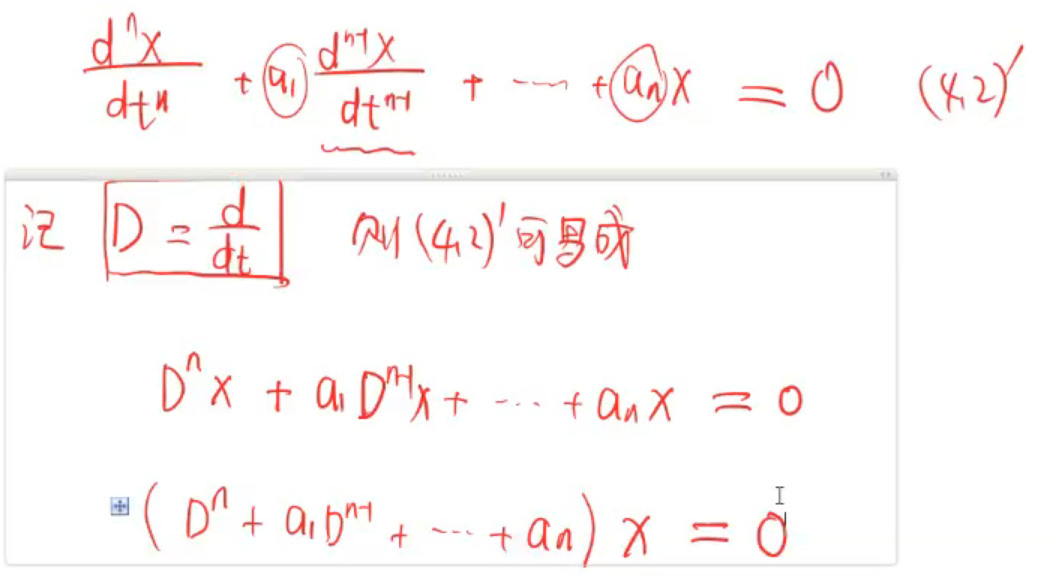 dⁿx/dtⁿ + a₁ dⁿ⁻¹x/dtⁿ⁻¹ + ⋯ + aₙx = 0 (4,2)′
记 D = d/dt 则(4,2)′可写成
Dⁿx + a₁Dⁿ⁻¹x + ⋯ + aₙx = 0
(Dⁿ + a₁Dⁿ⁻¹ + ⋯ + aₙ) x = 0